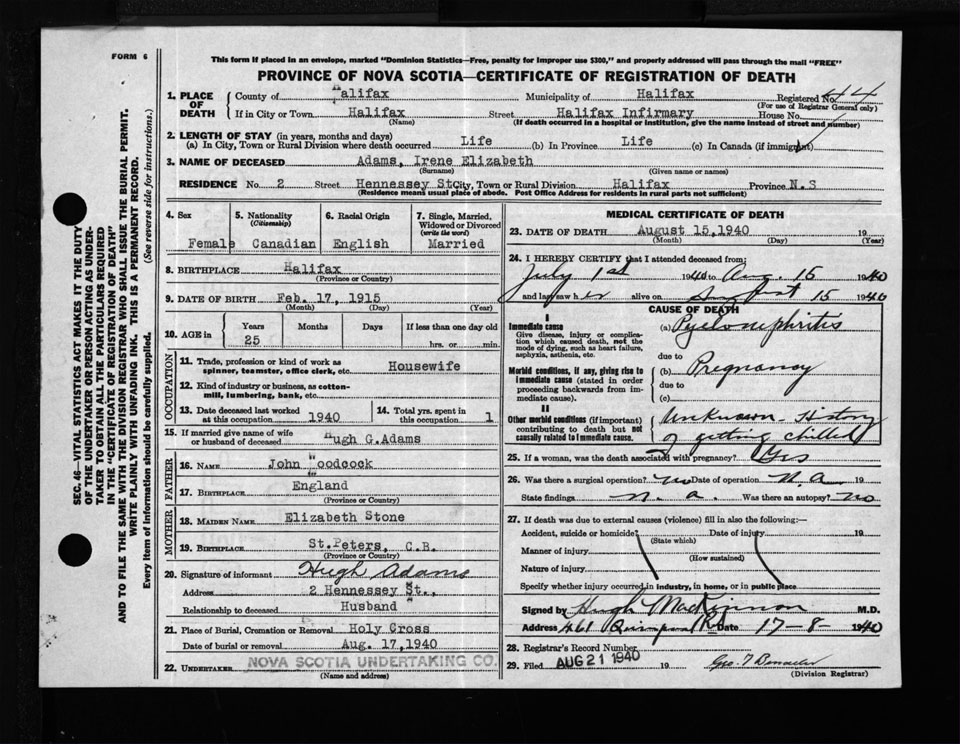 FORM 6
This form if placed in an envelope, marked "Dominion Statistics—Free, penalty for improper use $300," and properly addressed will pass through the mail "FREE"
PROVINCE OF NOVA SCOTIA—CERTIFICATE OF REGISTRATION OF DEATH
1. PLACE OF DEATH County of Halifax Municipality of Halifax Registered No. 44
(For use of Registrar General only)
If in City or Town Halifax Street Halifax Infirmary House No.
(Name) (If death occurred in a hospital or institution, give the name instead of street and number)
2. LENGTH OF STAY (in years, months and days)
(a) In City, Town or Rural Division where death occurred Life (b) In Province Life (c) In Canada (if immigrant)
3. NAME OF DECEASED Adams, Irene Elizabeth
(Surname) (Given name or names)
RESIDENCE No. 2 Street Hennessey St. City, Town or Rural Division Halifax Province N.S
(Residence means usual place of abode. Post Office Address for residents in rural parts not sufficient)
4. Sex Female
5. Nationality (Citizenship) Canadian
6. Racial Origin English
7. Single, Married, Widowed or Divorced (write the word) Married
8. BIRTHPLACE Halifax
(Province or Country)
9. DATE OF BIRTH Feb. 17, 1915
(Month) (Day) (Year)
10. AGE in Years Months Days If less than one day old
25 hrs. or min.
OCCUPATION
11. Trade, profession or kind of work as spinner, teamster, office clerk, etc. Housewife
12. Kind of industry or business, as cotton-mill, lumbering, bank, etc.
13. Date deceased last worked at this occupation 1940
14. Total yrs. spent in this occupation 1
15. If married give name of wife or husband of deceased Hugh G.Adams
FATHER
16. NAME John Woodcock
17. BIRTHPLACE England
(Province or Country)
MOTHER
18. MAIDEN NAME Elizabeth Stone
19. BIRTHPLACE St.Peters, C.B.
(Province or Country)
20. Signature of informant Hugh Adams
Address 2 Hennessey St.,
Relationship to deceased Husband
21. Place of Burial, Cremation or Removal Holy Cross
Date of burial or removal Aug. 17,1940
22. UNDERTAKER NOVA SCOTIA UNDERTAKING CO.
(Name and Address)
MEDICAL CERTIFICATE OF DEATH
23. DATE OF DEATH August 15,1940 19
(Month) (Day) (Year)
24. I HEREBY CERTIFY that I attended deceased from:
July 1st 1940 to Aug. 15 1940
and last saw her alive on August 15 1940
CAUSE OF DEATH
I
Immediate cause
Give disease, injury or complication which caused death, not the mode of dying, such as heart failure, asphyxia, asthenia, etc.
(a) Pyelonephritis
due to
Morbid conditions, if any, giving rise to immediate cause (stated in order proceeding backwards from immediate cause).
(b) Pregnancy
due to
(c)
II
Other morbid conditions (if important) contributing to death but not causally related to immediate cause.
Unknown. History
of getting chilled
25. If a woman, was the death associated with pregnancy? Yes
26. Was there a surgical operation? no Date of operation N.A. 19
State findings n.a. Was there an autopsy? no
27. If death was due to external causes (violence) fill in also the following:—
Accident, suicide or homicide? Date of injury 19
(State which)
Manner of injury
(How sustained)
Nature of injury
Specify whether injury occurred in industry, in home, or in public place
Signed by Hugh MacKinnon M.D.
Address 461 Quinpool Rd Date 17-8- 1940
28. Registrar's Record Number
29. Filed AUG 21 1940 19
(Division Registrar)
SEC. 46—VITAL STATISTICS ACT MAKES IT THE DUTY
OF THE UNDERTAKER OR PERSON ACTING AS UNDER-
TAKER TO OBTAIN ALL THE PARTICULARS REQUIRED
IN THE "CERTIFICATE OF REGISTRATION OF DEATH"
AND TO FILE THE SAME WITH THE DIVISION REGISTRAR WHO SHALL ISSUE THE BURIAL PERMIT.
WRITE PLAINLY WITH UNFADING INK. THIS IS A PERMANENT RECORD.
Every item of information should be carefully supplied. (See reverse side for instructions.)